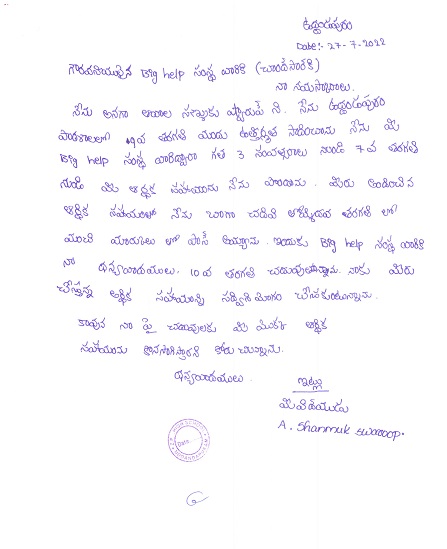 ఉద్దండపురం
Date:- 27-7-2022
గౌరవనీయులైన Big help సంస్థ వారికి
నా నమస్కారాలు.
నేను అనగా
నేను ఉద్దండపురం
పాఠశాలలో 9వ తరగతి యందు ఉత్తీర్ణత సాధించాను నేను మీ
Big help సంస్థ వారిద్వారా గత 3 సంవత్సరాలు నుండి 7వ తరగతి
నుండి మీ ఆర్థిక సహాయము నేను పొందాను. మీరు అందించిన
ఆర్థిక సహాయంతో నేను బాగా చదివి తొమ్మిదవ తరగతి లో
మంచి మార్కులు తో పాస్ అయ్యాను. ఇందుకు Big help సంస్థ వారికి
నా ధన్యవాదములు. 10వ తరగతి చదువుతున్నాను. నాకు మీరు
చేస్తున్న ఆర్థిక సహాయాన్ని సద్వినియోగం చేసుకుంటున్నాను.
కావున నా పై చదువులకు మీ యొక్క ఆర్థిక
సహాయము కొనసాగిస్తారని కోరుచున్నాను.
ధన్యవాదములు.
ఇట్లు
మీ విధేయుడు
A. Shanmuk swaroop.